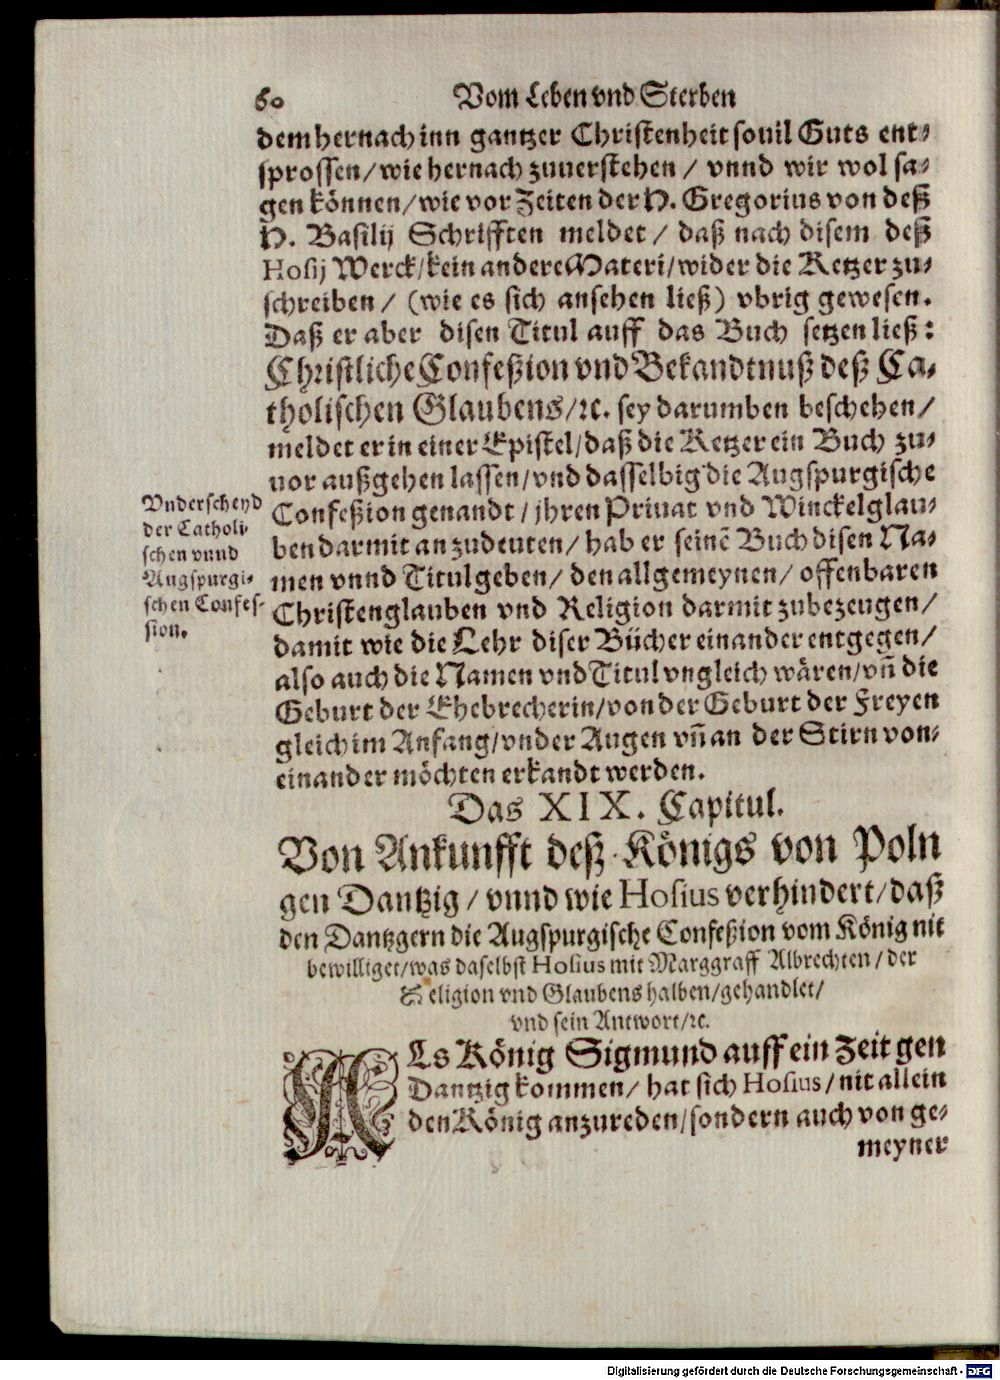 60 Vom Leben vnd Sterben
dem hernach inn gantzer Christenheit souil Guts ent-
sprossen/ wie hernach zuuerstehen/ vnnd wir wol sa-
gen können/ wie vor Zeiten der H. Gregorius von deß
H. Basilij Schrifften meldet/ daß nach disem deß
Hosij Werck/ kein andere Materi/ wider die Ketzer zu-
schreiben/ (wie es sich ansehen ließ) vbrig gewesen.
Daß er aber disen Titul auff das Buch setzen ließ:
Christliche Confeßion vnd Bekandtnuß deß Ca-
tholischen Glaubens/ ꝛc. sey darumben beschehen/
meldet er in einer Epistel/ daß die Ketzer ein Buch zu-
uor außgehen lassen/ vnd dasselbig die Augspurgische
Confeßion genandt/ jhren Priuat vnd Winckelglau-
ben darmit anzudeuten/ hab er seinẽ Buch disen Na-
men vnnd Titul geben/ den allgemeynen/ offenbaren
Christenglauben vnd Religion darmit zubezeugen/
damit wie die Lehr diser Bücher einander entgegen/
also auch die Namen vnd Titul vngleich wären/ vñ die
Geburt der Ehebrecherin/ von der Geburt der Freyen
gleich im Anfang/ vnder Augen vñ an der Stirn von-
einander möchten erkandt werden.
Vnderscheyd
der Catholi-
schen vnnd
Augspurgi-
schen Confes-
sion.
Das XIX. Capitul.
Von Ankunfft deß Königs von Poln
gen Dantzig/ vnnd wie Hosius verhindert/ daß
den Dantzgern die Augspurgische Confeßion vom König nit
bewilliget/ was daselbst Hosius mit Marggraff Albrechten/ der
Religion vnd Glaubens halben/ gehandlet/
vnd sein Antwort/ ꝛc.
ALs König Sigmund auff ein Zeit gen
Dantzig kommen/ hat sich Hosius/ nit allein
den König anzureden/ sondern auch von ge-
meyner
Digitalisierung gefördert durch die Deutsche Forschungsgemeinschaft - DFG